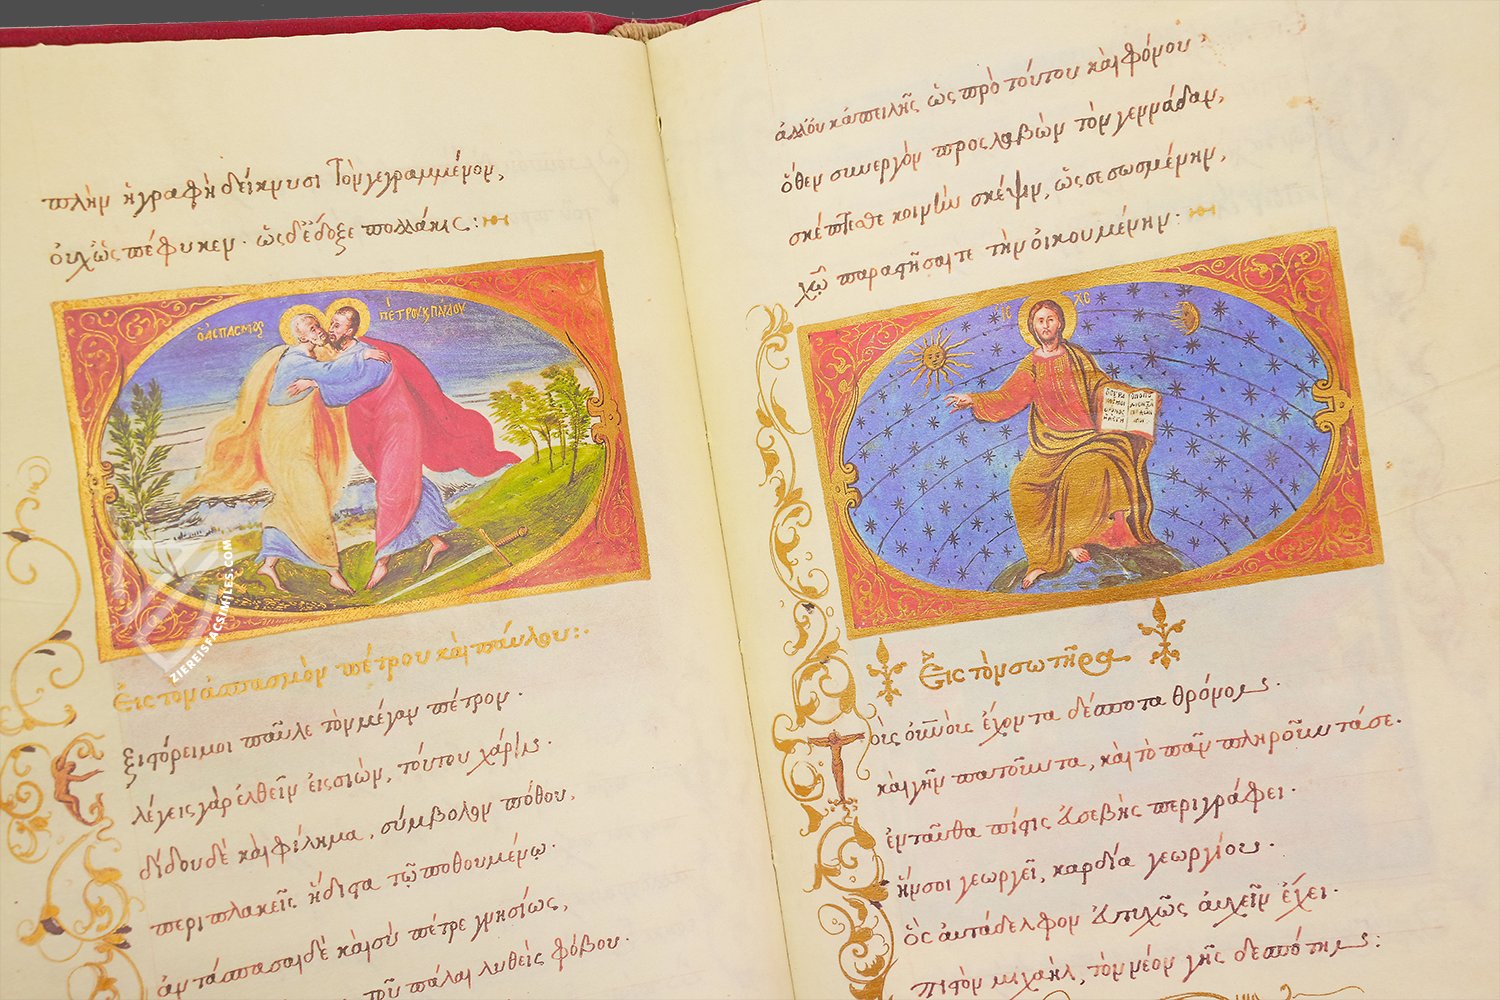 πλὴν ἡ γραφὴ δείκνυσι Τὸν γεγραμμένον,
οὐχ ὡς πέφυκεν· ὡς δ' ἔδοξε πολλάκις:
Ο ΑΣΠΑΣΜΟΣ
ΠΕΤΡΟΥ Κ ΠΑΥΛΟΥ
Εἰς τὸν ἀσπασμὸν πέτρου καὶ παύλου:·
ξιφόρει μοι παῦλε τὸν μέγαν πέτρον·
λέγεις γὰρ ἐλθεῖν εἰς σιὼν, τούτου χάριν·
δίδου δὲ καὶ φίλημα, σύμβολον πόθου,
περιπλακεὶς ἥδιστα τῷ ποθουμένῳ·
ἀντάσπασαι δὲ καὶ σὺ πέτρε γνησίως,
τοῦ πάλαι λυθεὶς φόβου·
ὡς πρὸ τούτου καὶ φόνου
ὅθεν συνεργὸν προσλαβὼν τὸν γεννάδαν,
σκέπτεσθε κοινὴν σκέψιν, ὡς σεσωσμένην,
χῷ παραστήσαιτε τὴν οἰκουμένην·
ΙΣ ΧΣ
Εἰς τὸν σωτῆρα
Τοῖς οὐνοῖς ἔχοντα δέσποτα θρόνοις·
καὶ γῆν πατοῦντα, καὶ τὸ πᾶν πληροῦντά σε·
ἐνταῦθα πίστις εὐσεβὴς περιγράφει·
ἥν σοι γεωργεῖ, καρδία γεωργίου·
ὃς αὐτάδελφον εὐτυχῶς αὐχεῖν ἔχει·
πιστὸν μιχαὴλ, τὸν νέον γῆς δεσπότην:
ZIEREISFACSIMILES.COM